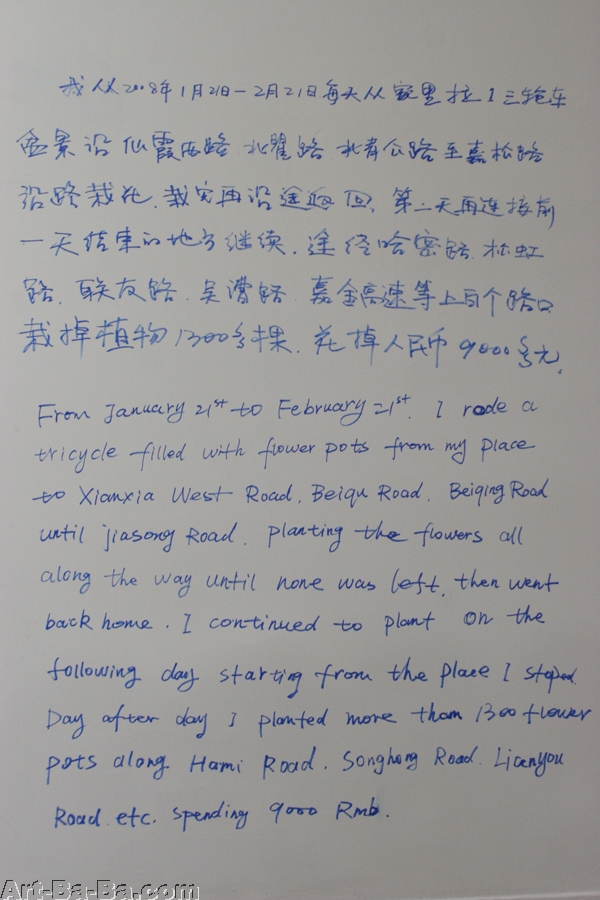 我从2008年1月21日-2月21日每天从家里拉1三轮车
盆景沿仙霞西路 北翟路 北青公路至嘉松路
沿路栽花,栽完再沿途返回,第二天再连接前
一天结束的地方继续,途经哈密路、淞虹
路、联友路、吴漕路、嘉金高速等上百个路口
栽掉植物1300多棵,花掉人民币9000多元.
From January 21st to February 21st, I rode a
tricycle filled with flower pots from my place
to Xianxia West Road, Beiqu Road, Beiqing Road
until jiasong Road, planting the flowers all
along the way until none was left, then went
back home. I continued to plant on the
following day starting from the place I stoped.
Day after day I planted more than 1300 flower
pots along Hami Road, Songhong Road, Lianyou
Road etc. spending 9000 Rmb.
Art-Ba-Ba.com